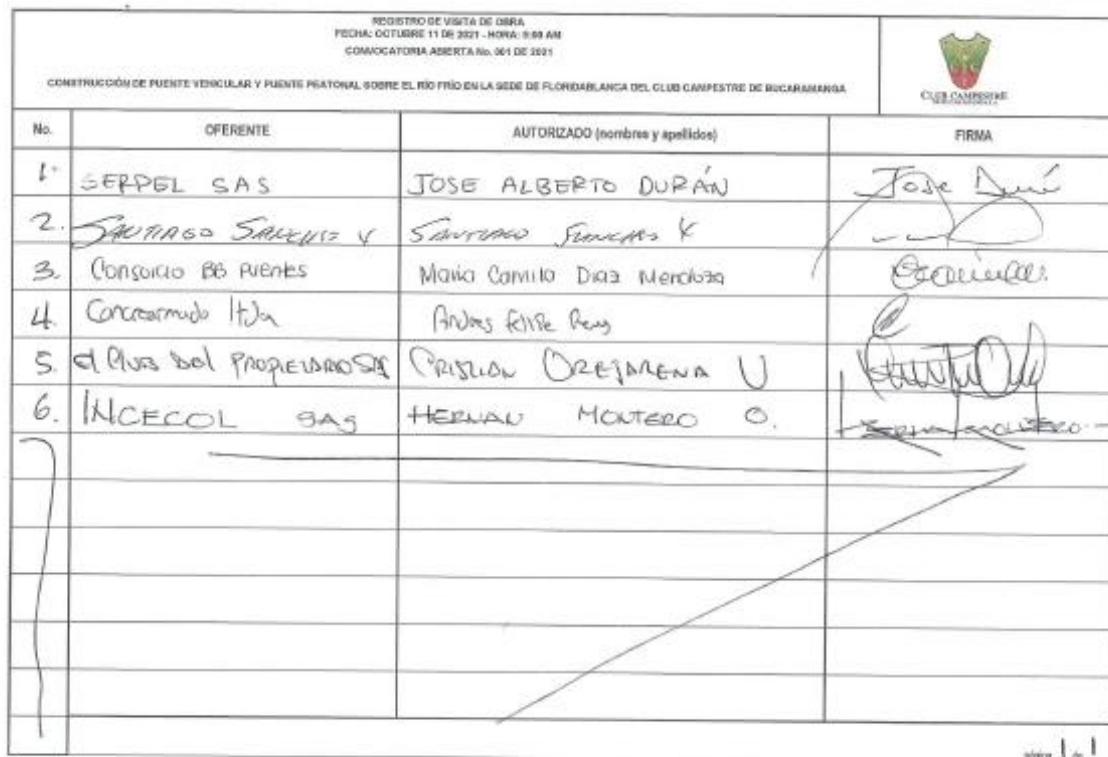 REGISTRO DE VISITA DE OBRA
FECHA: OCTUBRE 11 DE 2021 - HORA: 9:00 AM
CONVOCATORIA ABIERTA No. 001 DE 2021
CONSTRUCCIÓN DE PUENTE VEHICULAR Y PUENTE PEATONAL SOBRE EL RÍO FRÍO EN LA SEDE DE FLORIDABLANCA DEL CLUB CAMPESTRE DE BUCARAMANGA
CLUB CAMPESTRE
No. OFERENTE AUTORIZADO (nombres y apellidos) FIRMA
1. SERPEL SAS JOSE ALBERTO DURÁN Jose
2. SANTIAGO Y SANTIAGO
3. Consorcio BB PUENTES Maria Camila Diaz Mendoza
4. Concrearmado ltda Andres Felipe
5. el Club Del PROPIETARIO SAS CRISTIAN OREJARENA U
6. INCECOL SAS HERNAN MONTERO O.
página 1 de 1